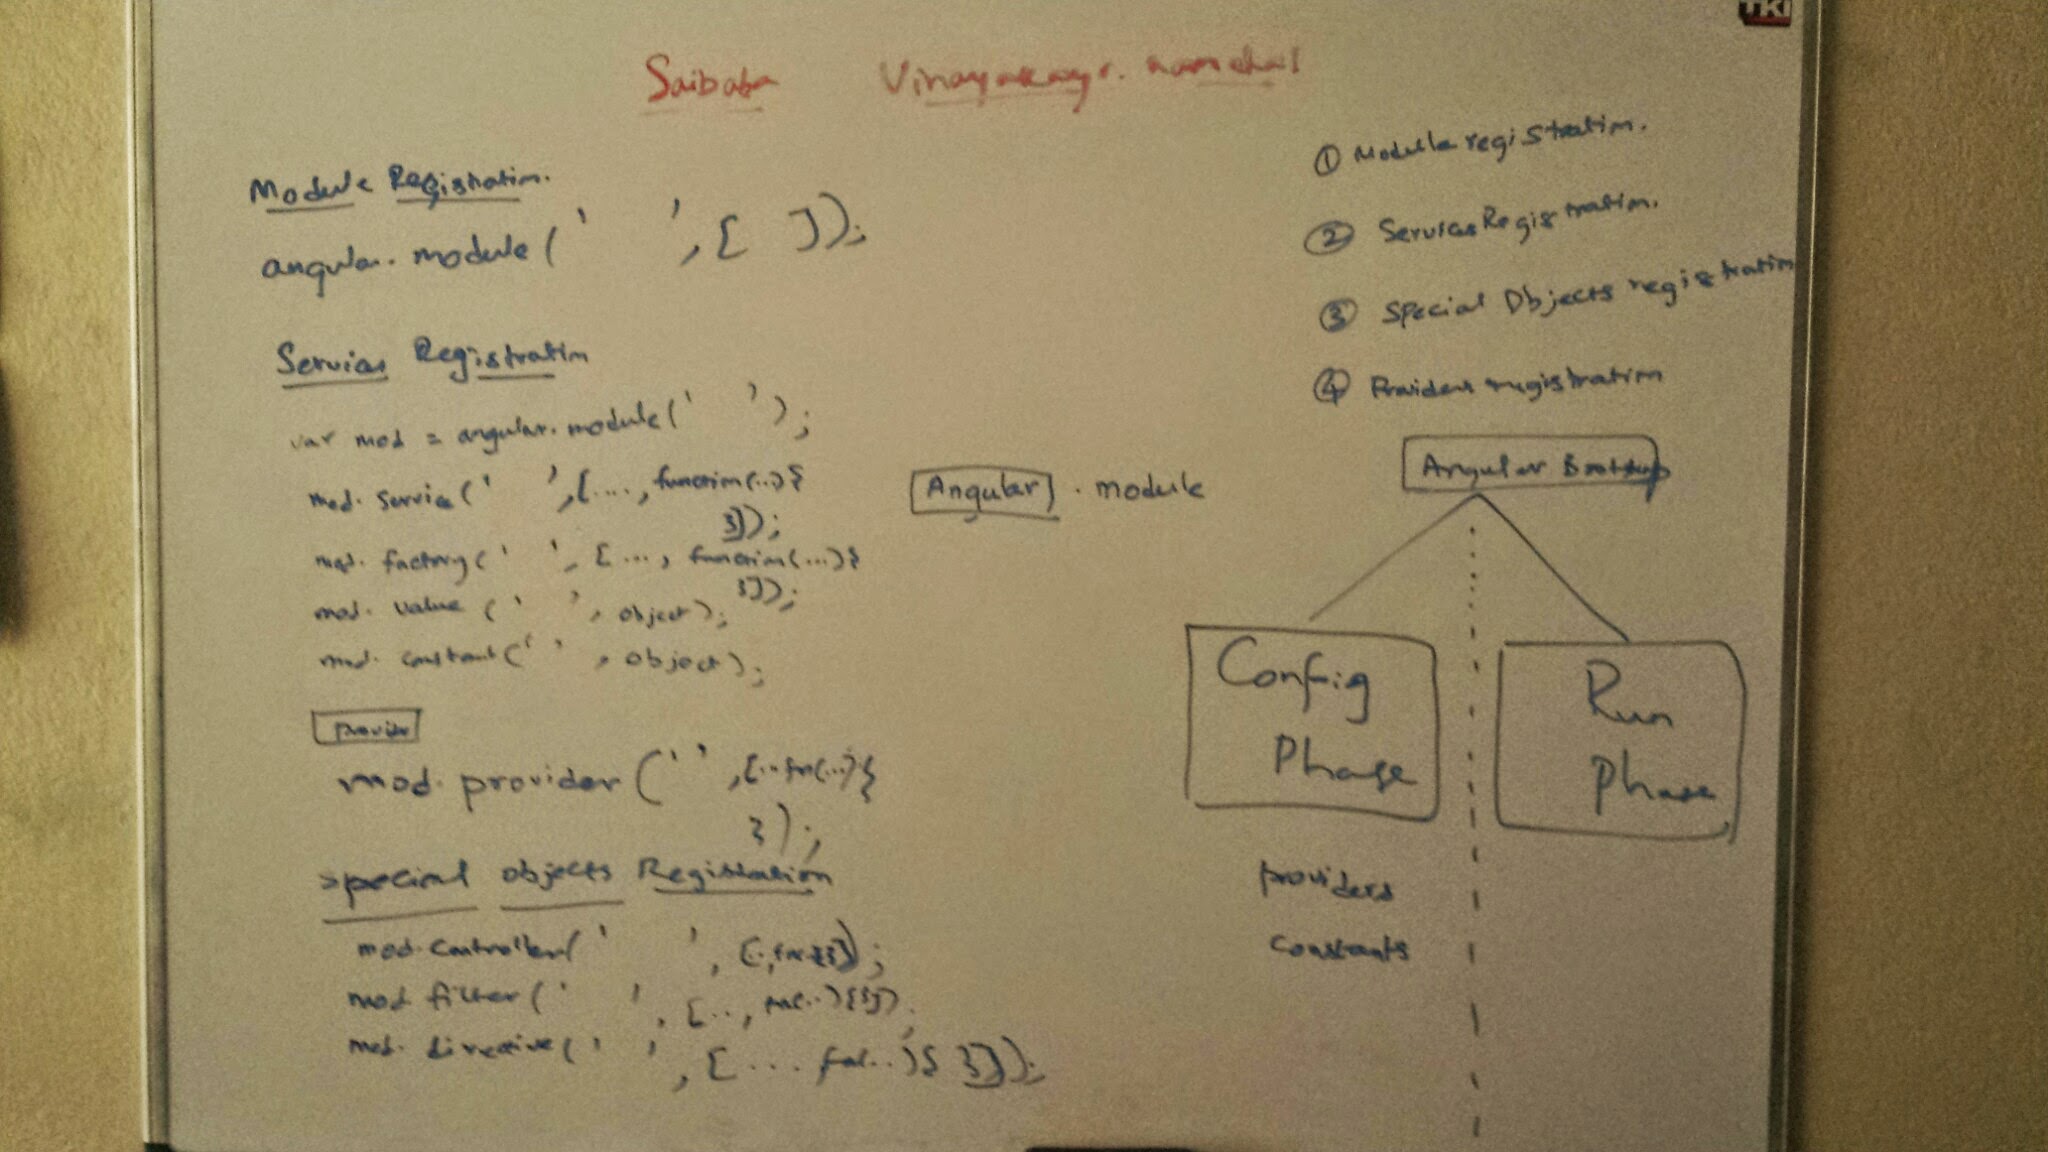 TKI
Saibaba
Module Registration.
angular.module(' ',[ ]);
Services Registration
var mod = angular.module(' ');
mod.service(' ',[....,function(...){
}]);
mod.factory(' ', [ ..., function(...){
}]);
mod.value (' ', object);
mod.constant(' ', object);
Provider
mod.provider(' ',[..fn(...){
});
Special objects Registration
mod.controller(' ', [..,fn{}]);
mod filter(' ', [..,fn(..){}]);
mod.directive(' ', [...fn(..){ }]);
Angular . module
① Module registration.
② Services Registration.
③ Special Objects registration
④ Providers registration
Angular Bootstrap
Config
Phase
Run
Phase
providers
constants